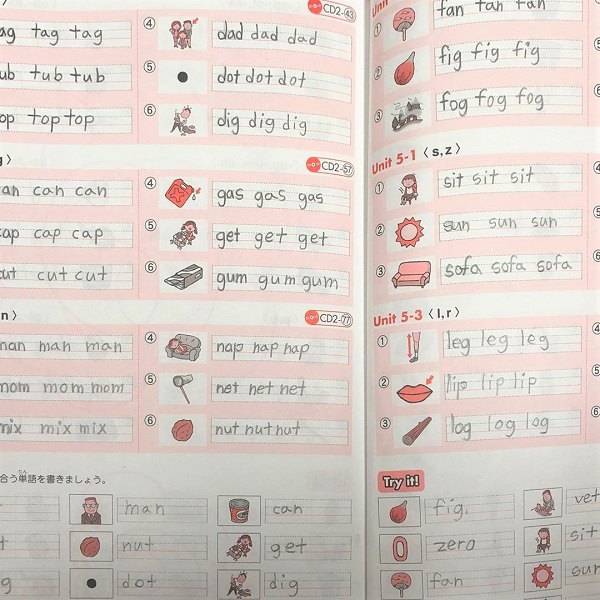 ④ dad dad dad
CD2-43
tag tag
⑤ dot dot dot
tub tub
⑥ dig dig dig
top top
CD2-57
can can
④ gas gas gas
cap cap cap
⑤ get get get
cut cut
⑥ gum gum gum
CD2-77
man man man
④ nap nap nap
mom mom mom
⑤ net net net
mix mix mix
⑥ nut nut nut
合う単語を書きましょう。
たん
man
can
nut
get
dot
dig
① fan fan fan
② fig fig fig
③ fog fog fog
Unit 5-1 〈 s, z 〉
① sit sit sit
② sun sun sun
③ sofa sofa sofa
Unit 5-3 〈 l, r 〉
① leg leg leg
② lip lip lip
③ log log log
Try it!
fig
vet
zero
sit
fan
sun